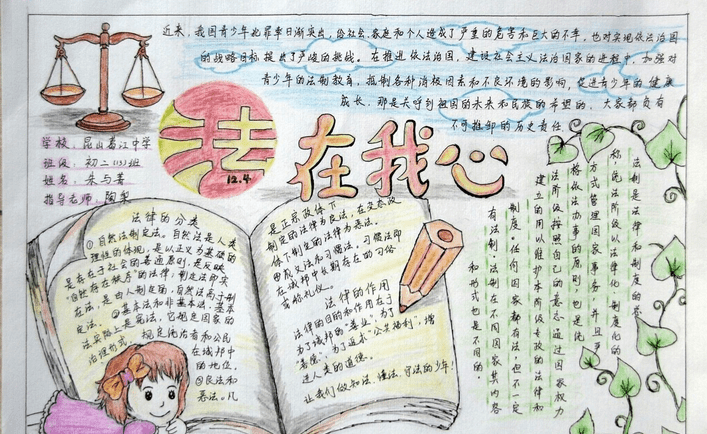 近来，我国青少年犯罪率日渐突出，给社会、家庭和个人造成了严重的危害和巨大的不幸，也对实现依法治国
的战略目标提出了严峻的挑战。在推进依法治国，建设社会主义法治国家的进程中，加强对
青少年的法制教育，抵制各种消极因素和不良环境的影响，促进青少年的健康
成长，那是关呼到祖国的未来和民族的希望的，大家都负有
不可推卸的历史责任。
法在我心
12.4
学校：昆山葛江中学
班级：初二(13)班
姓名：朱与菁
指导老师：陶梨
法律的分类
①自然法制定法。自然法是人类
理性的体现，是以正义为基础的
是存在于社会的普通原则，是反映
"自然存在秩序"的法律，制定法即实
在法，是由人制定的，自然法高于制
定法。②基本法和非基本法。基本
法实际上是宪法，它规定国家的
治理形式，规定统治者和公民
在城邦中
的地位。
③良法和
恶法。凡
是正宗政体下
制定的法律为良法，在变态政
体下制定的法律为恶法。
④成文法和习惯法，习惯法即
在城邦中长期存在的习俗
或俗礼仪。
法律的作用
法律的目的和作用在于
为了城邦的"善业"，为了
"善德"，为了追求"公共福利"，增
进人类的道德。
让我们做知法、懂法、守法的少年！
法制是法律和制度的总
称，统治阶级以法律化、制度化的
方式管理国家事务，并且严
格依法办事的原则，也是统
治阶级按照自己的意志通过国家权力
建立的用以维护本阶级专政的法律和
制度，任何国家都有法，但不一定
有法制，法制在不同国家其内容
和形式也是不同的。